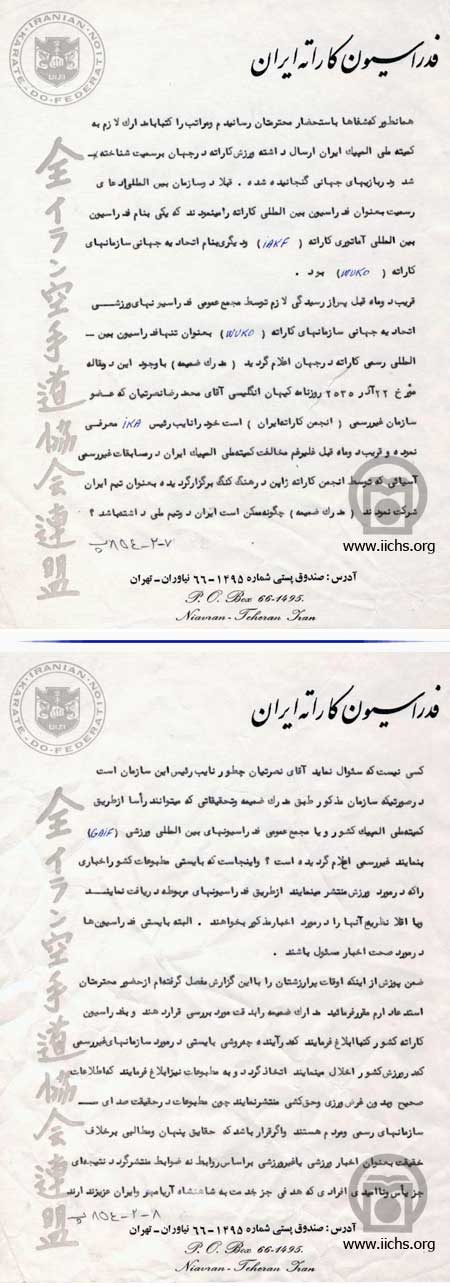 IRANIAN
KARATE-DO-FEDERATION
فدراسیون کاراته ایران
全イラン空手道協会連盟
همانطور که شفاها باستحضار محترمتان رسانیدم و مراتب را کتبا با مدارک لازم به
کمیته ملی المپیک ایران ارسال داشته ورزش کاراته در جهان برسمیت شناخته
شد و در بازیهای جهانی گنجانیده شده . قبلا دو سازمان بین المللی ادعای
رسمیت بعنوان فدراسیون بین المللی کاراته را مینمودند که یکی بنام فدراسیون
بین المللی آماتوری کاراته ( IAKF ) و دیگری بنام اتحادیه جهانی سازمانهای
کاراته ( WUKO ) بود .
قریب دو ماه قبل پس از رسیدگی لازم توسط مجمع عمومی فدراسیونهای ورزشی
اتحادیه جهانی سازمانهای کاراته ( WUKO ) بعنوان تنها فدراسیون بین -
المللی رسمی کاراته در جهان اعلام گردید ( مدرک ضمیمه ) با وجود این در مقاله
مورخ ۲۲ آذر ۲۵۳۵ روزنامه کیهان انگلیسی آقای محمد رضا نصرتیان که عضو
سازمان غیررسمی ( انجمن کاراته ایران ) است خود را نایب رئیس IKA معرفی
نموده و قریب دو ماه قبل علیرغم مخالفت کمیته ملی المپیک ایران در مسابقات غیررسمی
آسیائی که توسط انجمن کاراته ژاپن در هنگ کنگ برگزار گردیده بعنوان تیم ایران
شرکت نمودند ( مدرک ضمیمه ) چگونه ممکن است ایران دو تیم ملی داشته باشد ؟
۸۵٤-۲-۷
www.iichs.org
آدرس : صندوق پستی شماره ۱۴۹۵-۶۶ نیاوران - تهران
P. O. Box 66-1495.
Niavran - Teheran Iran
IRANIAN
KARATE-DO-FEDERATION
فدراسیون کاراته ایران
全イラン空手道協会連盟
کسی نیست که سئوال نماید آقای نصرتیان چطور نایب رئیس این سازمان است
در صورتیکه سازمان مذکور طبق مدرک ضمیمه و تحقیقاتی که میتوانند رأسا از طریق
کمیته ملی المپیک کشور و یا مجمع عمومی فدراسیونهای بین المللی ورزشی (GAIF)
بنمایند غیررسمی اعلام گردیده است ؟ و اینجاست که بایستی مطبوعات کشور اخباری
را که در مورد ورزش منتشر مینمایند از طریق فدراسیونهای مربوطه دریافت نمایند
و یا اقلا نظریه آنها را در مورد اخبار مذکور بخواهند . البته بایستی فدراسیون ها
در مورد صحت اخبار مسئول باشند .
ضمن پوزش از اینکه اوقات پرارزشتان را با این گزارش مفصل گرفته ام از حضور محترمتان
استدعا دارم مقرر فرمائید مدارک ضمیمه را بدقت مورد بررسی قرار دهند و بفدراسیون
کاراته کشور کتبا ابلاغ فرمایند که در آینده چه روشی بایستی در مورد سازمانهای غیررسمی
که در ورزش کشور اخلال مینمایند اتخاذ گردد و به مطبوعات نیز ابلاغ فرمایند که اطلاعات
صحیح و بدون غرض ورزی و حق کشی منتشر نمایند چون مطبوعات در حقیقت صدای
سازمانهای رسمی و مردم هستند و اگر قرار باشد که حقایق پنهان و مطالبی برخلاف
حقیقت بعنوان اخبار ورزشی یا غیر ورزشی براساس روابط نه ضوابط منتشر گردد نتیجه ای
جز یأس و ناامیدی افرادی که هدفی جز خدمت به شاهنشاه آریامهر و ایران عزیز ندارند
۸۵٤-۲-۸
آدرس : صندوق پستی شماره ۱۴۹۵-۶۶ نیاوران - تهران
P. O. Box 66-1495.
Niavran - Teheran Iran
www.iichs.org